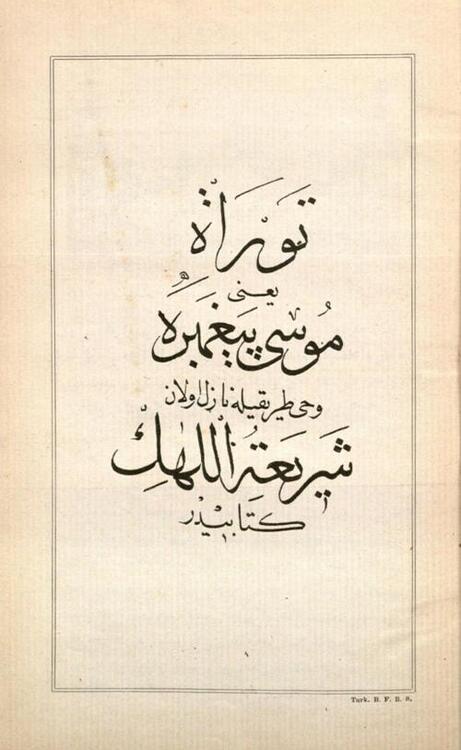 توراة
يعنى
موسى پيغمبره
وحى طريقيله نازل اولان
شريعة اللهك
كتابيدر
Turk. B. F. B. S.